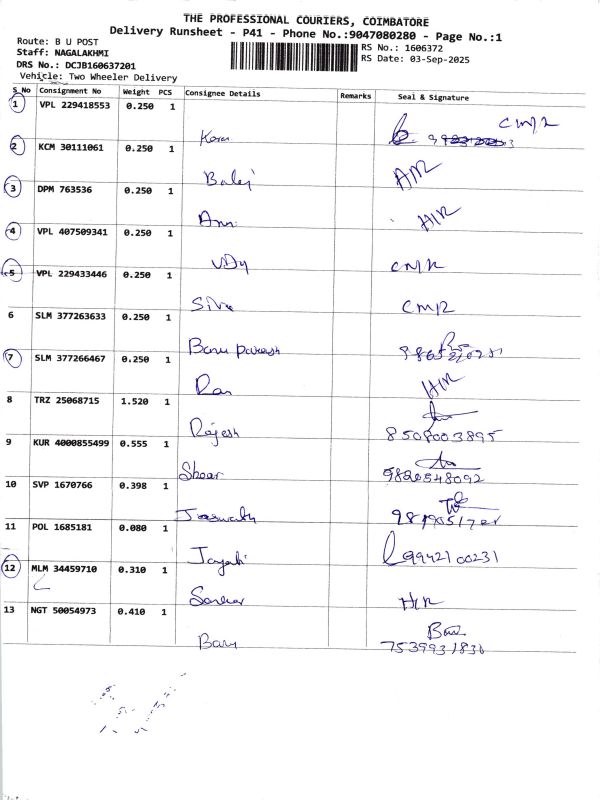 THE PROFESSIONAL COURIERS, COIMBATORE
Delivery Runsheet - P41 - Phone No.:9047080280 - Page No.:1
Route: B U POST
RS No.: 1606372
Staff: NAGALAKHMI
RS Date: 03-Sep-2025
DRS No.: DCJB160637201
Vehicle: Two Wheeler Delivery
S No Consignment No Weight PCS Consignee Details Remarks Seal & Signature
1 VPL 229418553 0.250 1
CMR
2 KCM 30111061 0.250 1
Balaji
3 DPM 763536 0.250 1
H/R
4 VPL 407509341 0.250 1
Udy CMR
5 VPL 229433446 0.250 1
Siva CMR
6 SLM 377263633 0.250 1
7 SLM 377266467 0.250 1
Ram H/R
8 TRZ 25068715 1.520 1
Rajesh 8508003895
9 KUR 4000855499 0.555 1
9820548092
10 SVP 1670766 0.398 1
11 POL 1685181 0.080 1
9942100231
12 MLM 34459710 0.310 1
H/R
13 NGT 50054973 0.410 1